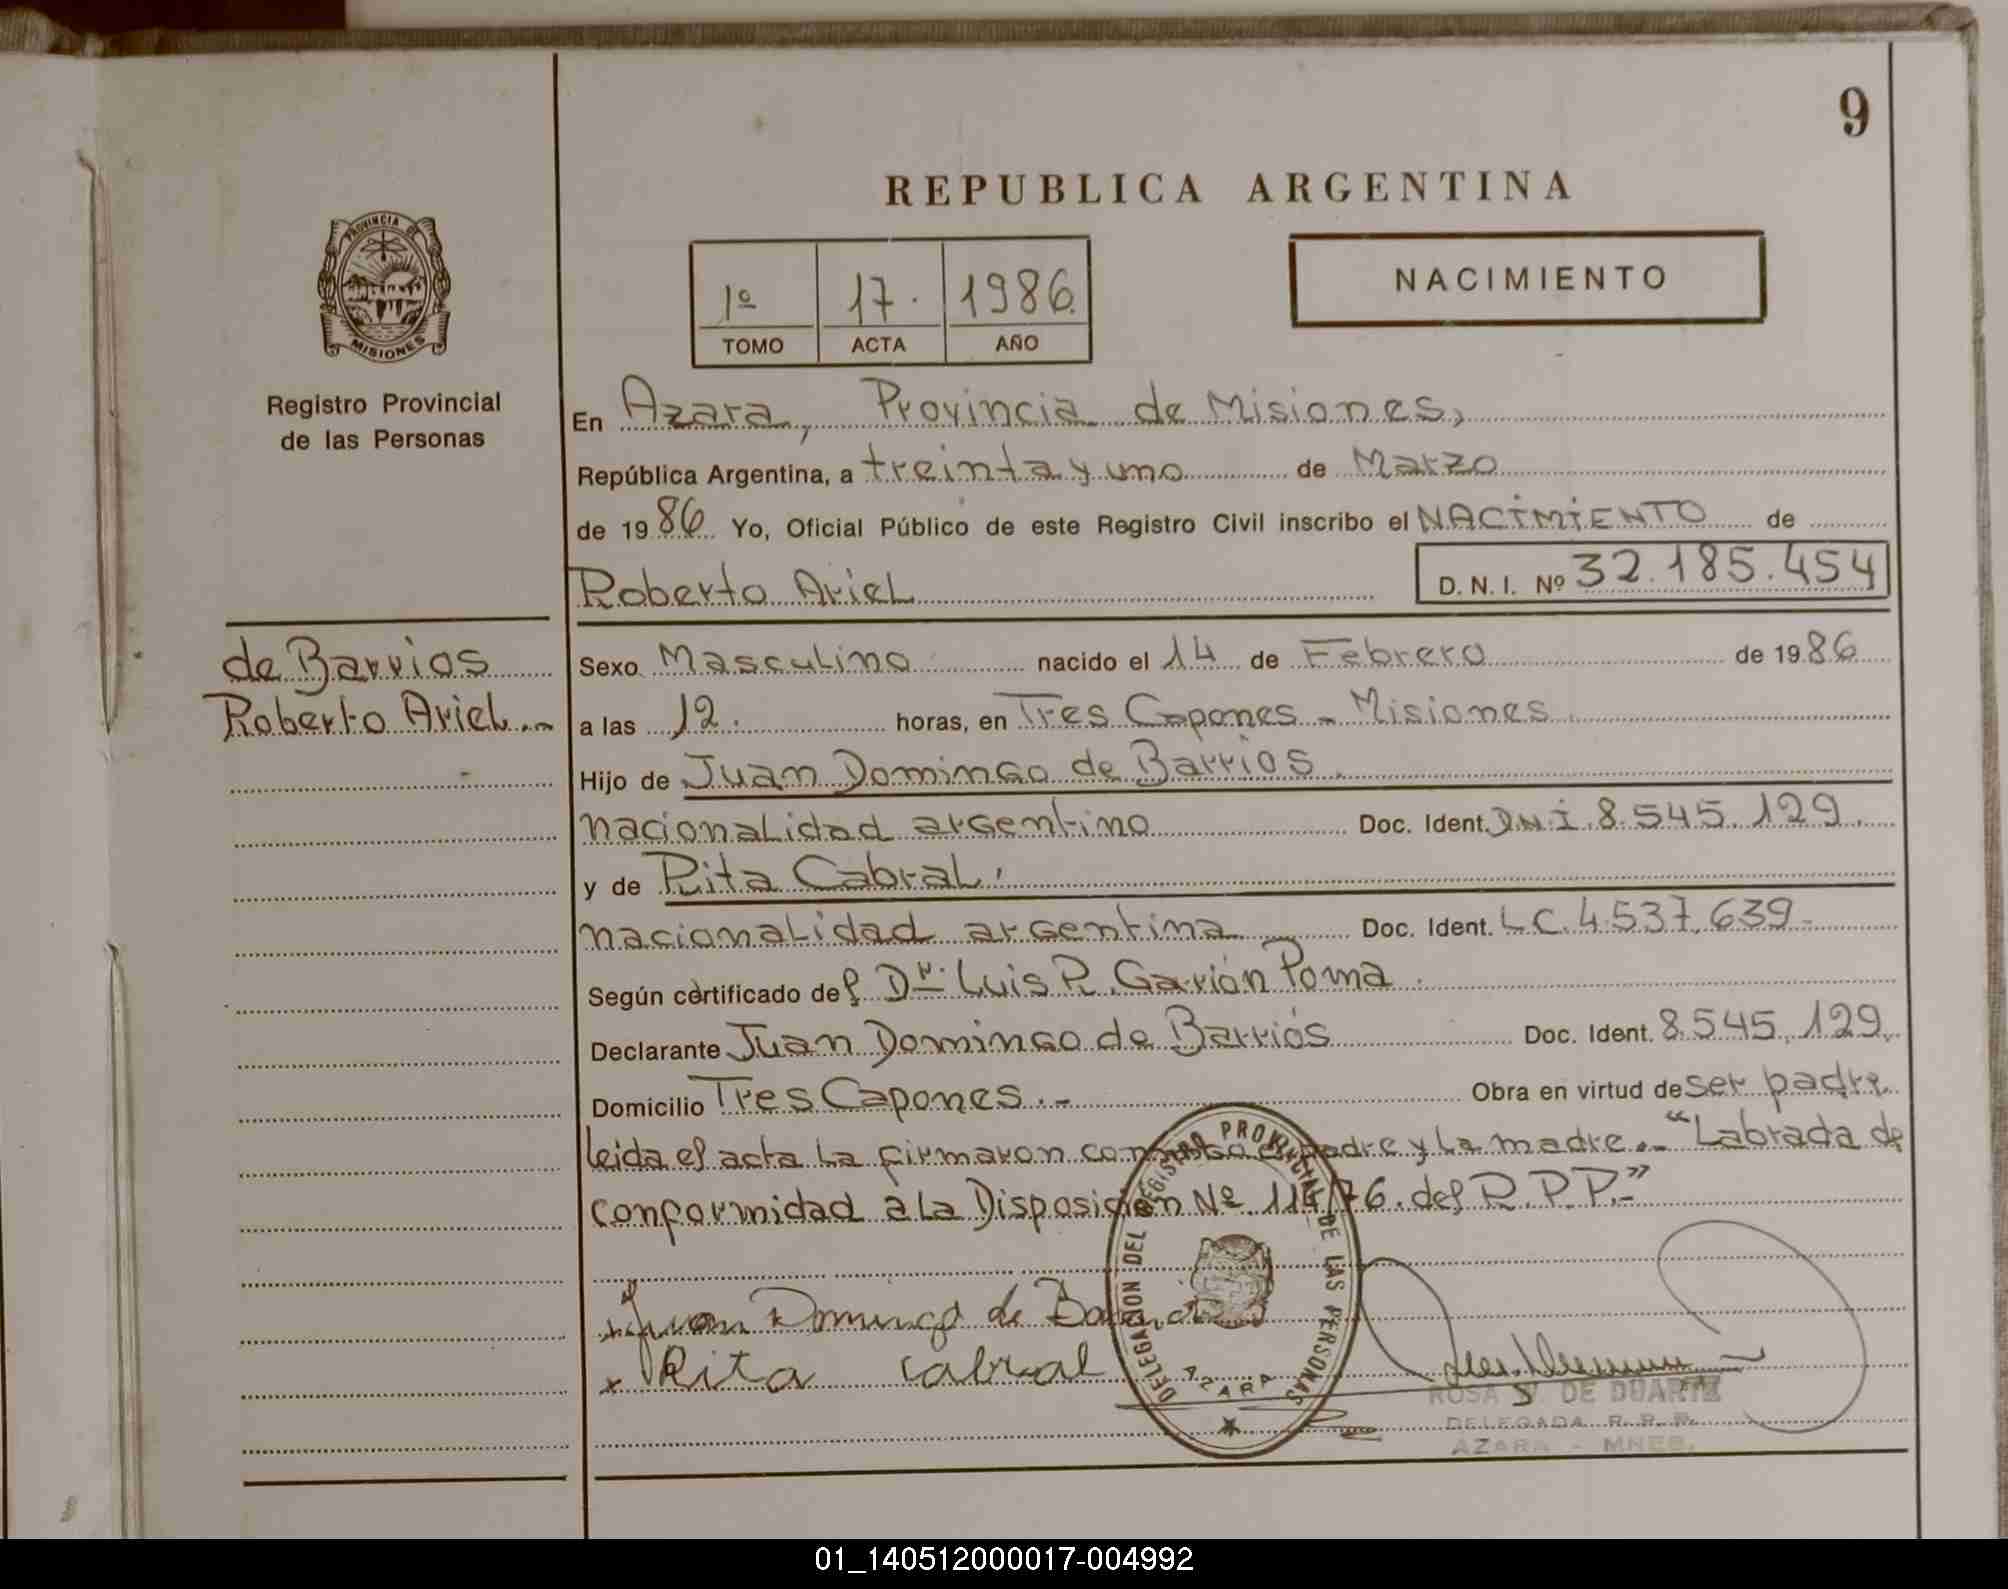 9
REPUBLICA ARGENTINA
PROVINCIA DE
MISIONES
Registro Provincial
de las Personas
1º 17. 1986.
TOMO ACTA AÑO
NACIMIENTO
En Azara, Provincia de Misiones,
República Argentina, a treinta y uno de Marzo
de 1986 Yo, Oficial Público de este Registro Civil inscribo el NACIMIENTO de
Roberto Ariel D. N. I. Nº 32.185.454
de Barrios
Roberto Ariel.-
Sexo Masculino nacido el 14 de Febrero de 1986
a las 12. horas, en Tres Capones - Misiones
Hijo de Juan Domingo de Barrios.
nacionalidad argentino Doc. Ident. D.N.I. 8.545.129.
y de Rita Cabral.
nacionalidad argentina Doc. Ident. L.C. 4.537.639-
Según certificado del Dr. Luis R. Garión Poma.
Declarante Juan Domingo de Barrios Doc. Ident. 8.545.129.
Domicilio Tres Capones.- Obra en virtud de ser padre
leida el acta la firmaron conmigo el padre y la madre.- "Labrada de
conformidad a la Disposición Nº 114/76. del R.P.P.-"
x Juan Domingo de Barrios
x Rita Cabral
DELEGACION DEL REGISTRO PROVINCIAL DE LAS PERSONAS
AZARA
ROSA DE DUARTE
DELEGADA R. P. P.
AZARA - MNES.
01_140512000017-004992